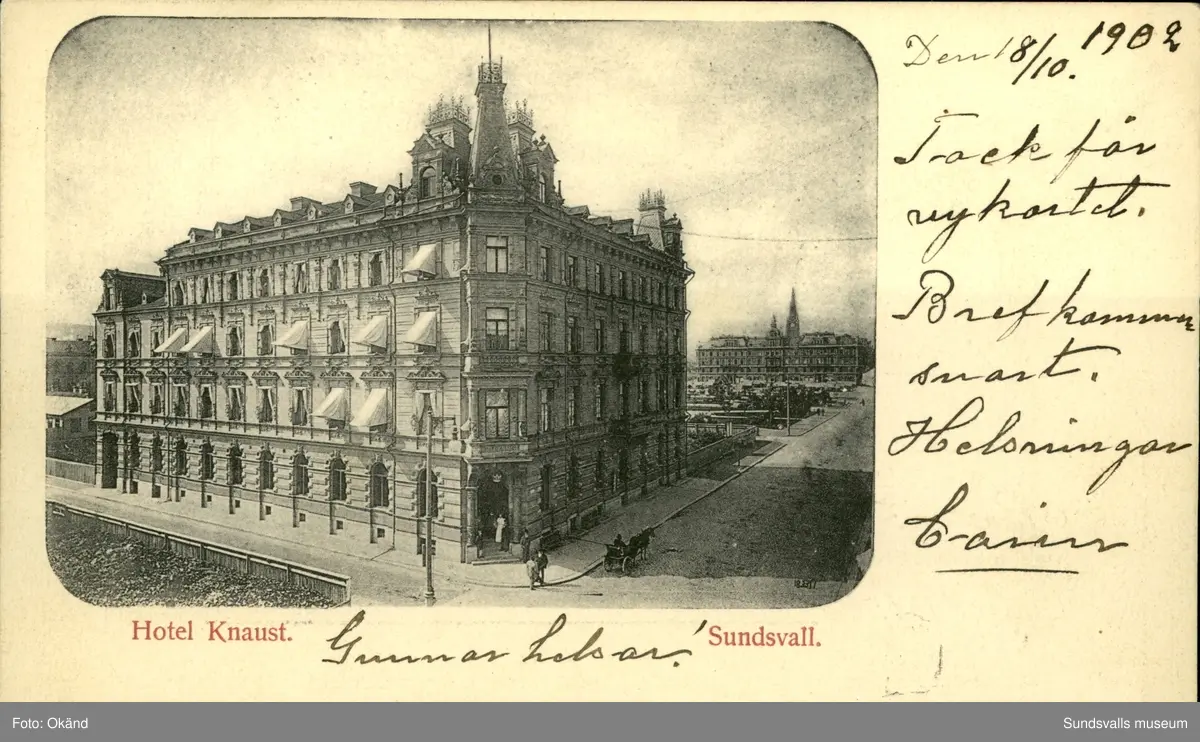 Den 18/10. 1902
Tack för
vykortet.
Bref kommer
snart.
Helsningar
Carin
Hotel Knaust.
Gunnar helsar!
Sundsvall.
Foto: Okänd
Sundsvalls museum